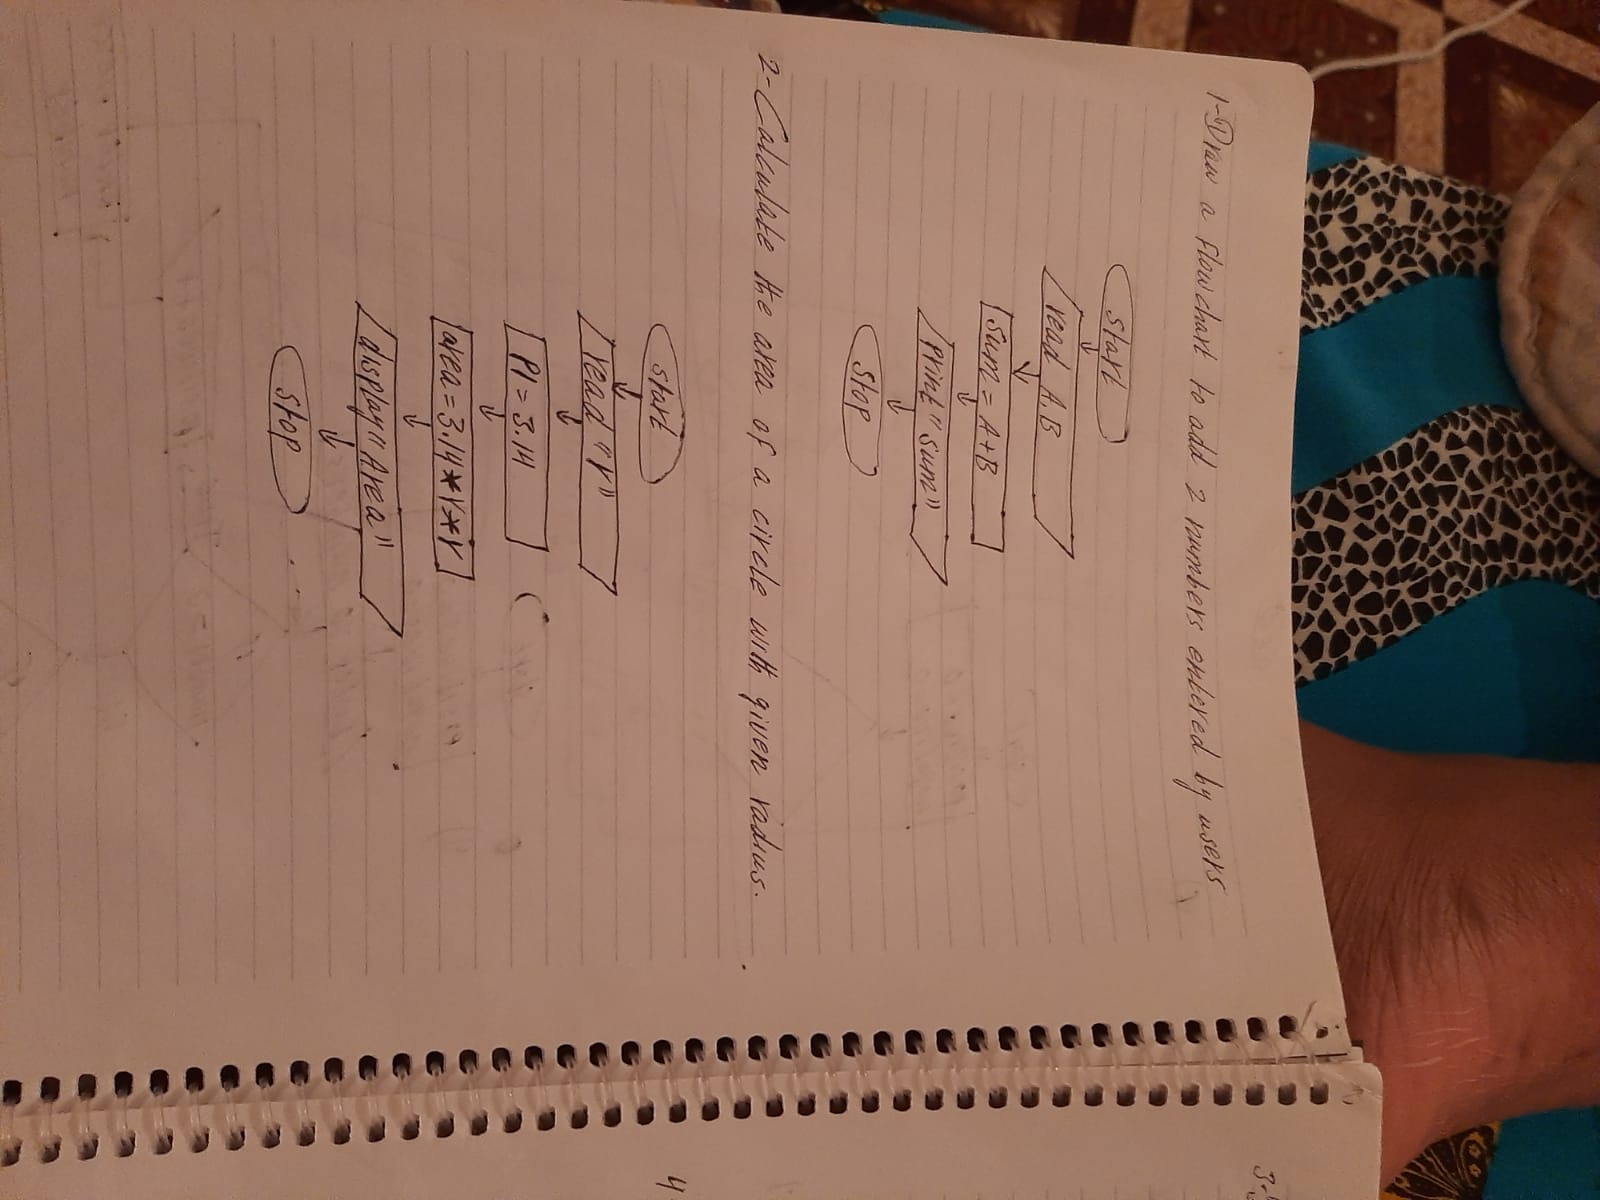 1-Draw a flowchart to add 2 numbers entered by users
start
read A,B
Sum = A+B
Print "Sum"
Stop
2-Calculate the area of a circle with given radius.
start
read "r"
PI = 3.14
area = 3.14*r*r
display "Area"
Stop
4